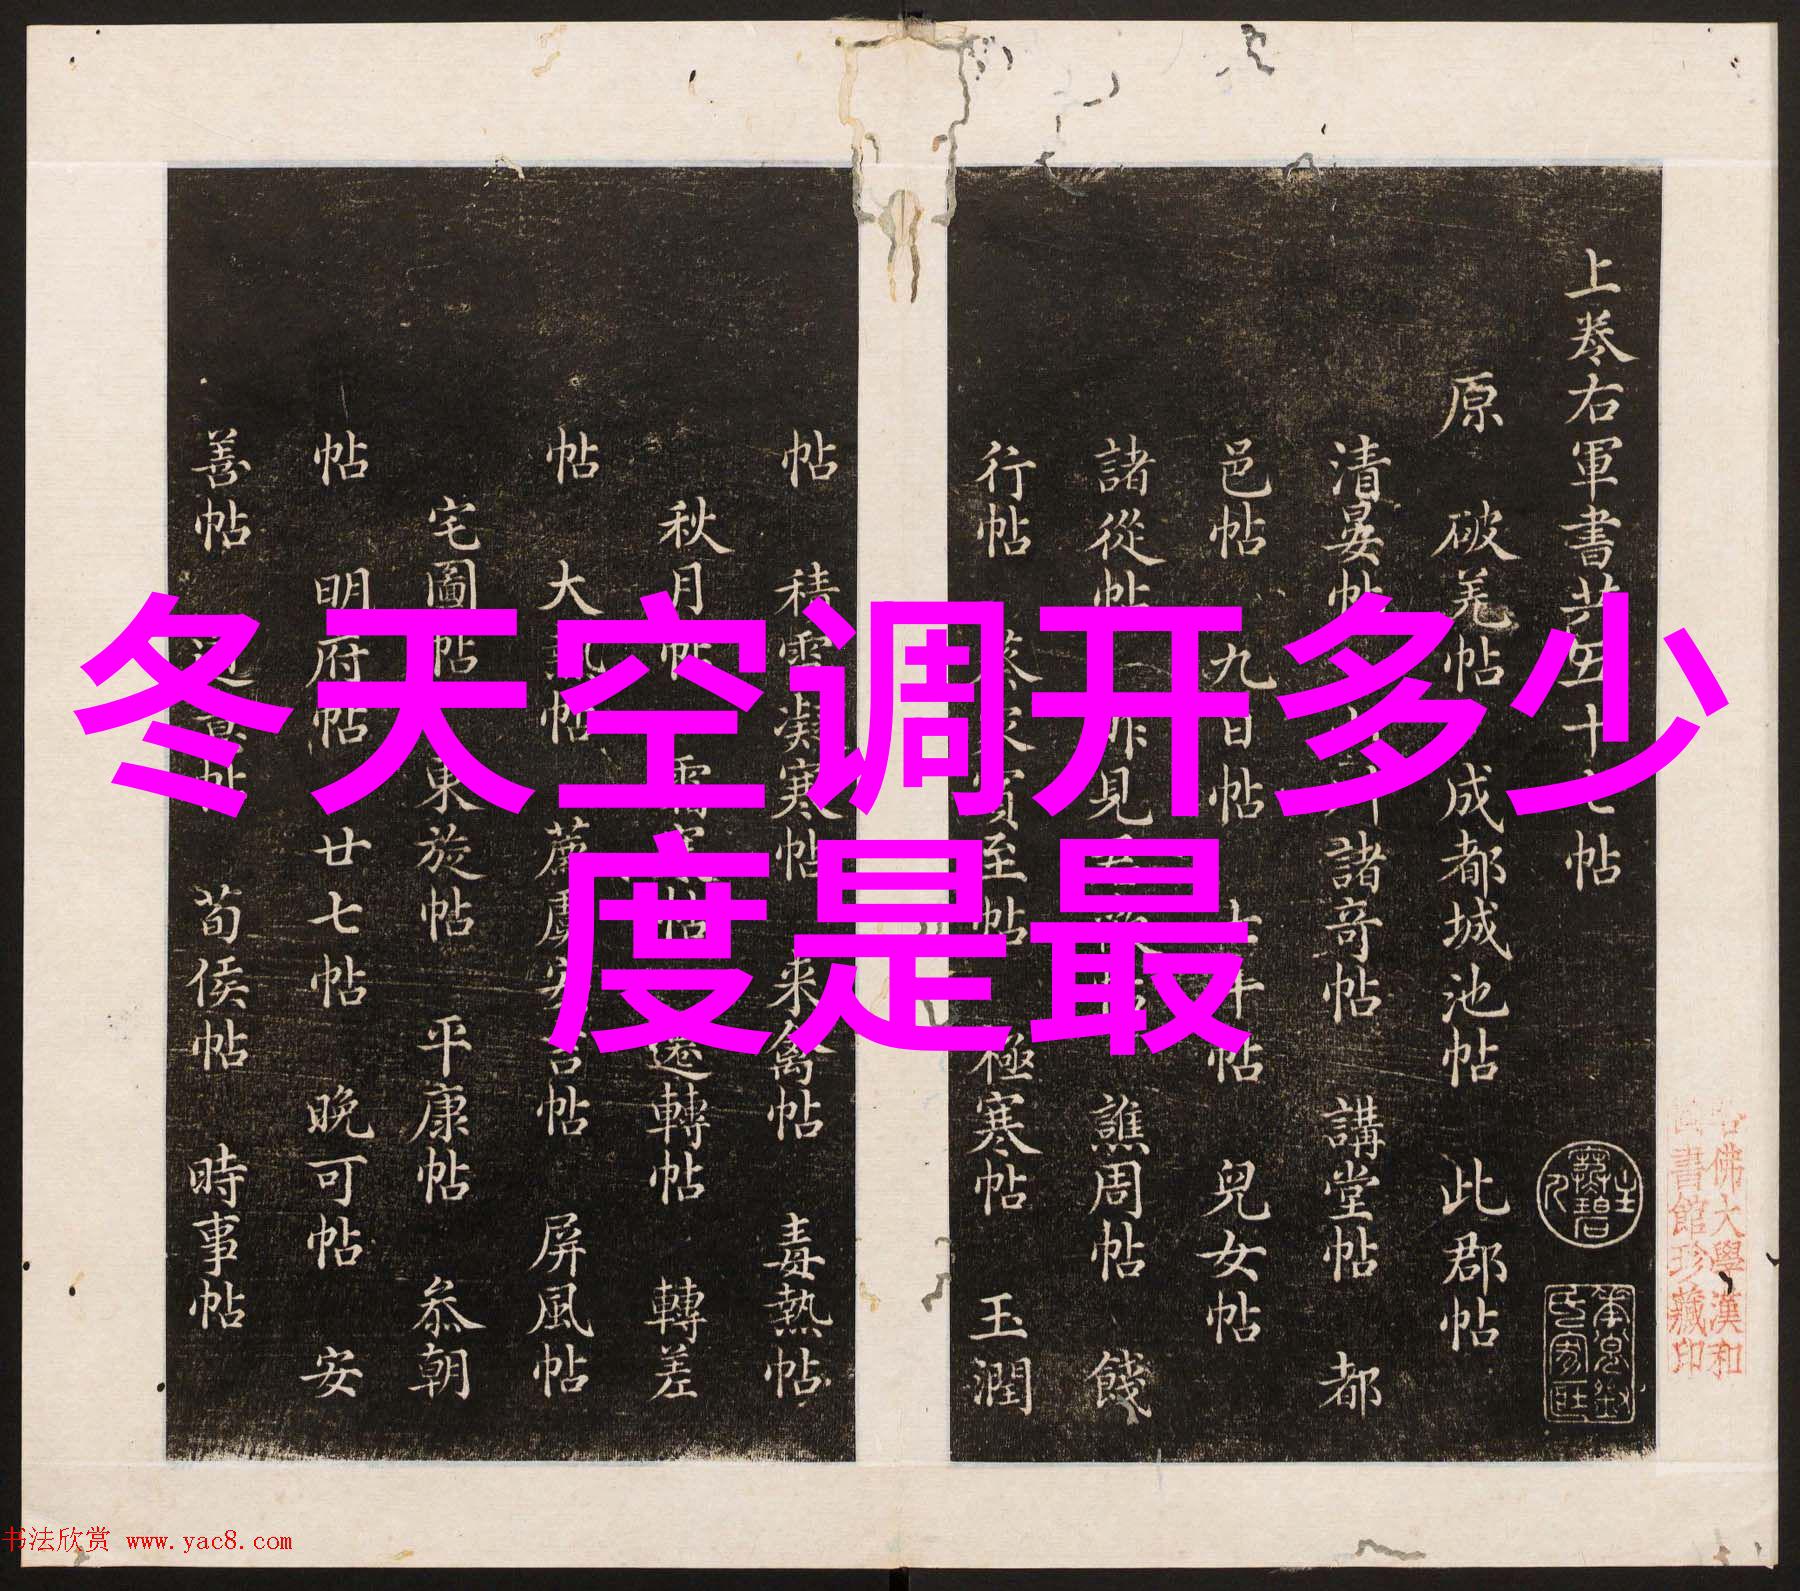 冬天空调开多少
度是最
上卷右軍書共五十七帖
原 破羌帖 成都城池帖 此郡帖
清晏帖 諸竒帖 講堂帖 都
邑帖 九日帖 七十帖 兒女帖
諸從帖 昨見 帖 譙周帖 餞
行帖 蔡家賓至帖 極寒帖 玉潤
帖 積雪凝寒帖 来禽帖 毒熱帖
秋月帖 遠轉帖 轉差
帖 大熱帖 帖 屏風帖
宅圖帖 東旋帖 平康帖 叅朝
帖 明府帖 廿七帖 晚可帖 安
善帖 帖 荀侯帖 時事帖
佛大學漢和
書館珍藏印
书法欣赏 www.yac8.com